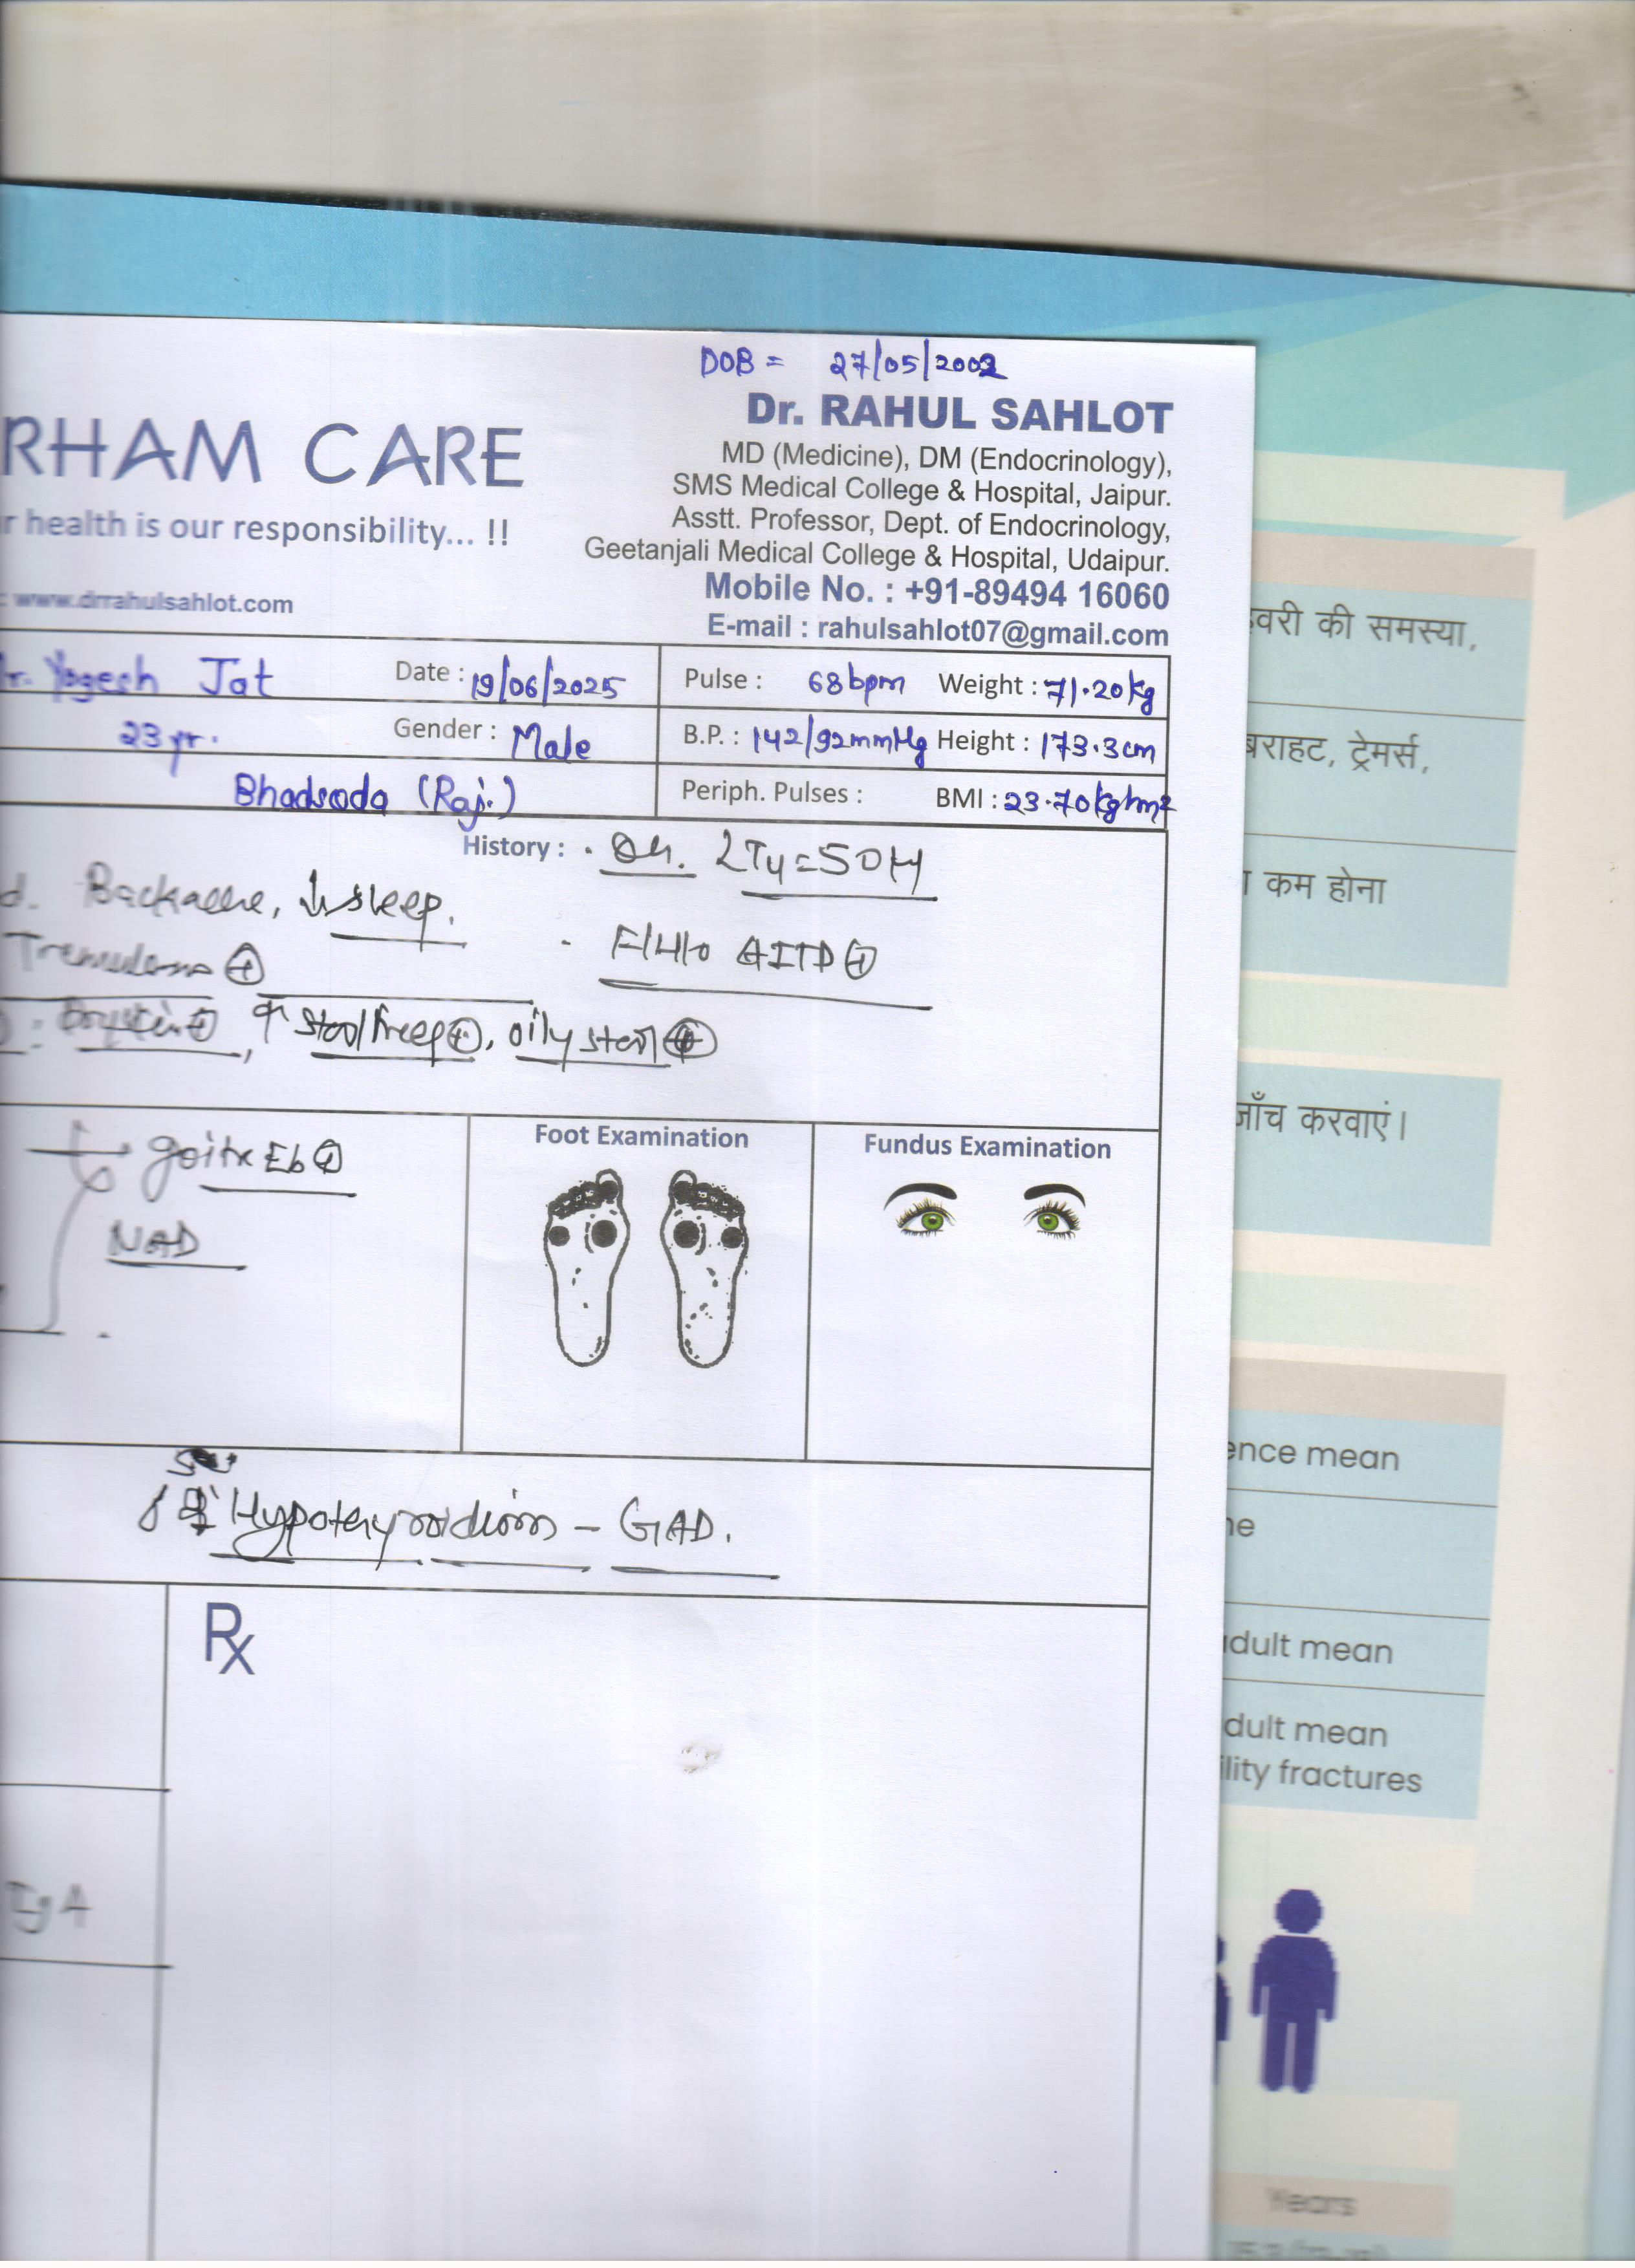 DOB = 27/05/2002
Dr. RAHUL SAHLOT
MD (Medicine), DM (Endocrinology),
SMS Medical College & Hospital, Jaipur.
Asstt. Professor, Dept. of Endocrinology,
Geetanjali Medical College & Hospital, Udaipur.
Mobile No. : +91-89494 16060
E-mail : rahulsahlot07@gmail.com
RHAM CARE
r health is our responsibility... !!
: www.drrahulsahlot.com
r. Yogesh Jat
Date : 19/06/2025
Pulse : 68bpm Weight : 71.20kg
23 yr.
Gender : Male
B.P. : 142/92mmHg Height : 173.3cm
Bhadsoda (Raj.)
Periph. Pulses : BMI : 23.70kg/m2
History : . LTy=50
d. Backache, ↓sleep.
. F/H/o AITD⊕
⊕
↑ stool freq⊕, oily stool⊕
goitre ⊕
NAD
Foot Examination
Fundus Examination
Hypothyroidism – GAD.
Rx
IgA
वरी की समस्या,
बराहट, ट्रेमर्स,
ा कम होना
जाँच करवाएं।
ence mean
ne
dult mean
dult mean
ility fractures
Years